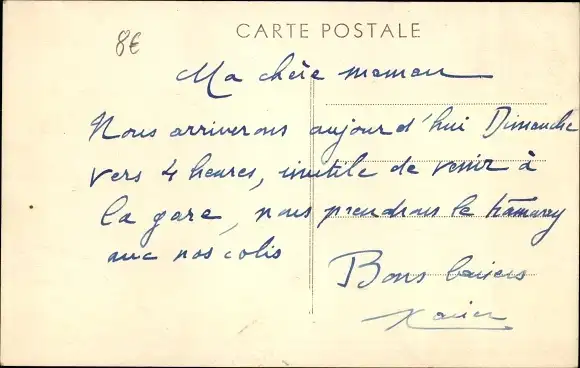 8€
CARTE POSTALE
Ma chère maman
Nous arriverons aujourd'hui Dimanche
vers 4 heures, inutile de venir à
la gare, nous prendrons le tramway
avec nos colis
Bons baisers
Xavier